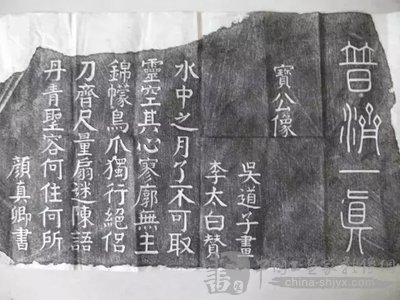 普濟一真
寶公像
吳道子畫
李太白贊
水中之月了不可取
靈空其心寥廓無主
錦幪鳥爪獨行絕侶
刀齊尺量扇迷陳語
丹青聖容何住何所
顏真卿書
china-shjyx.com